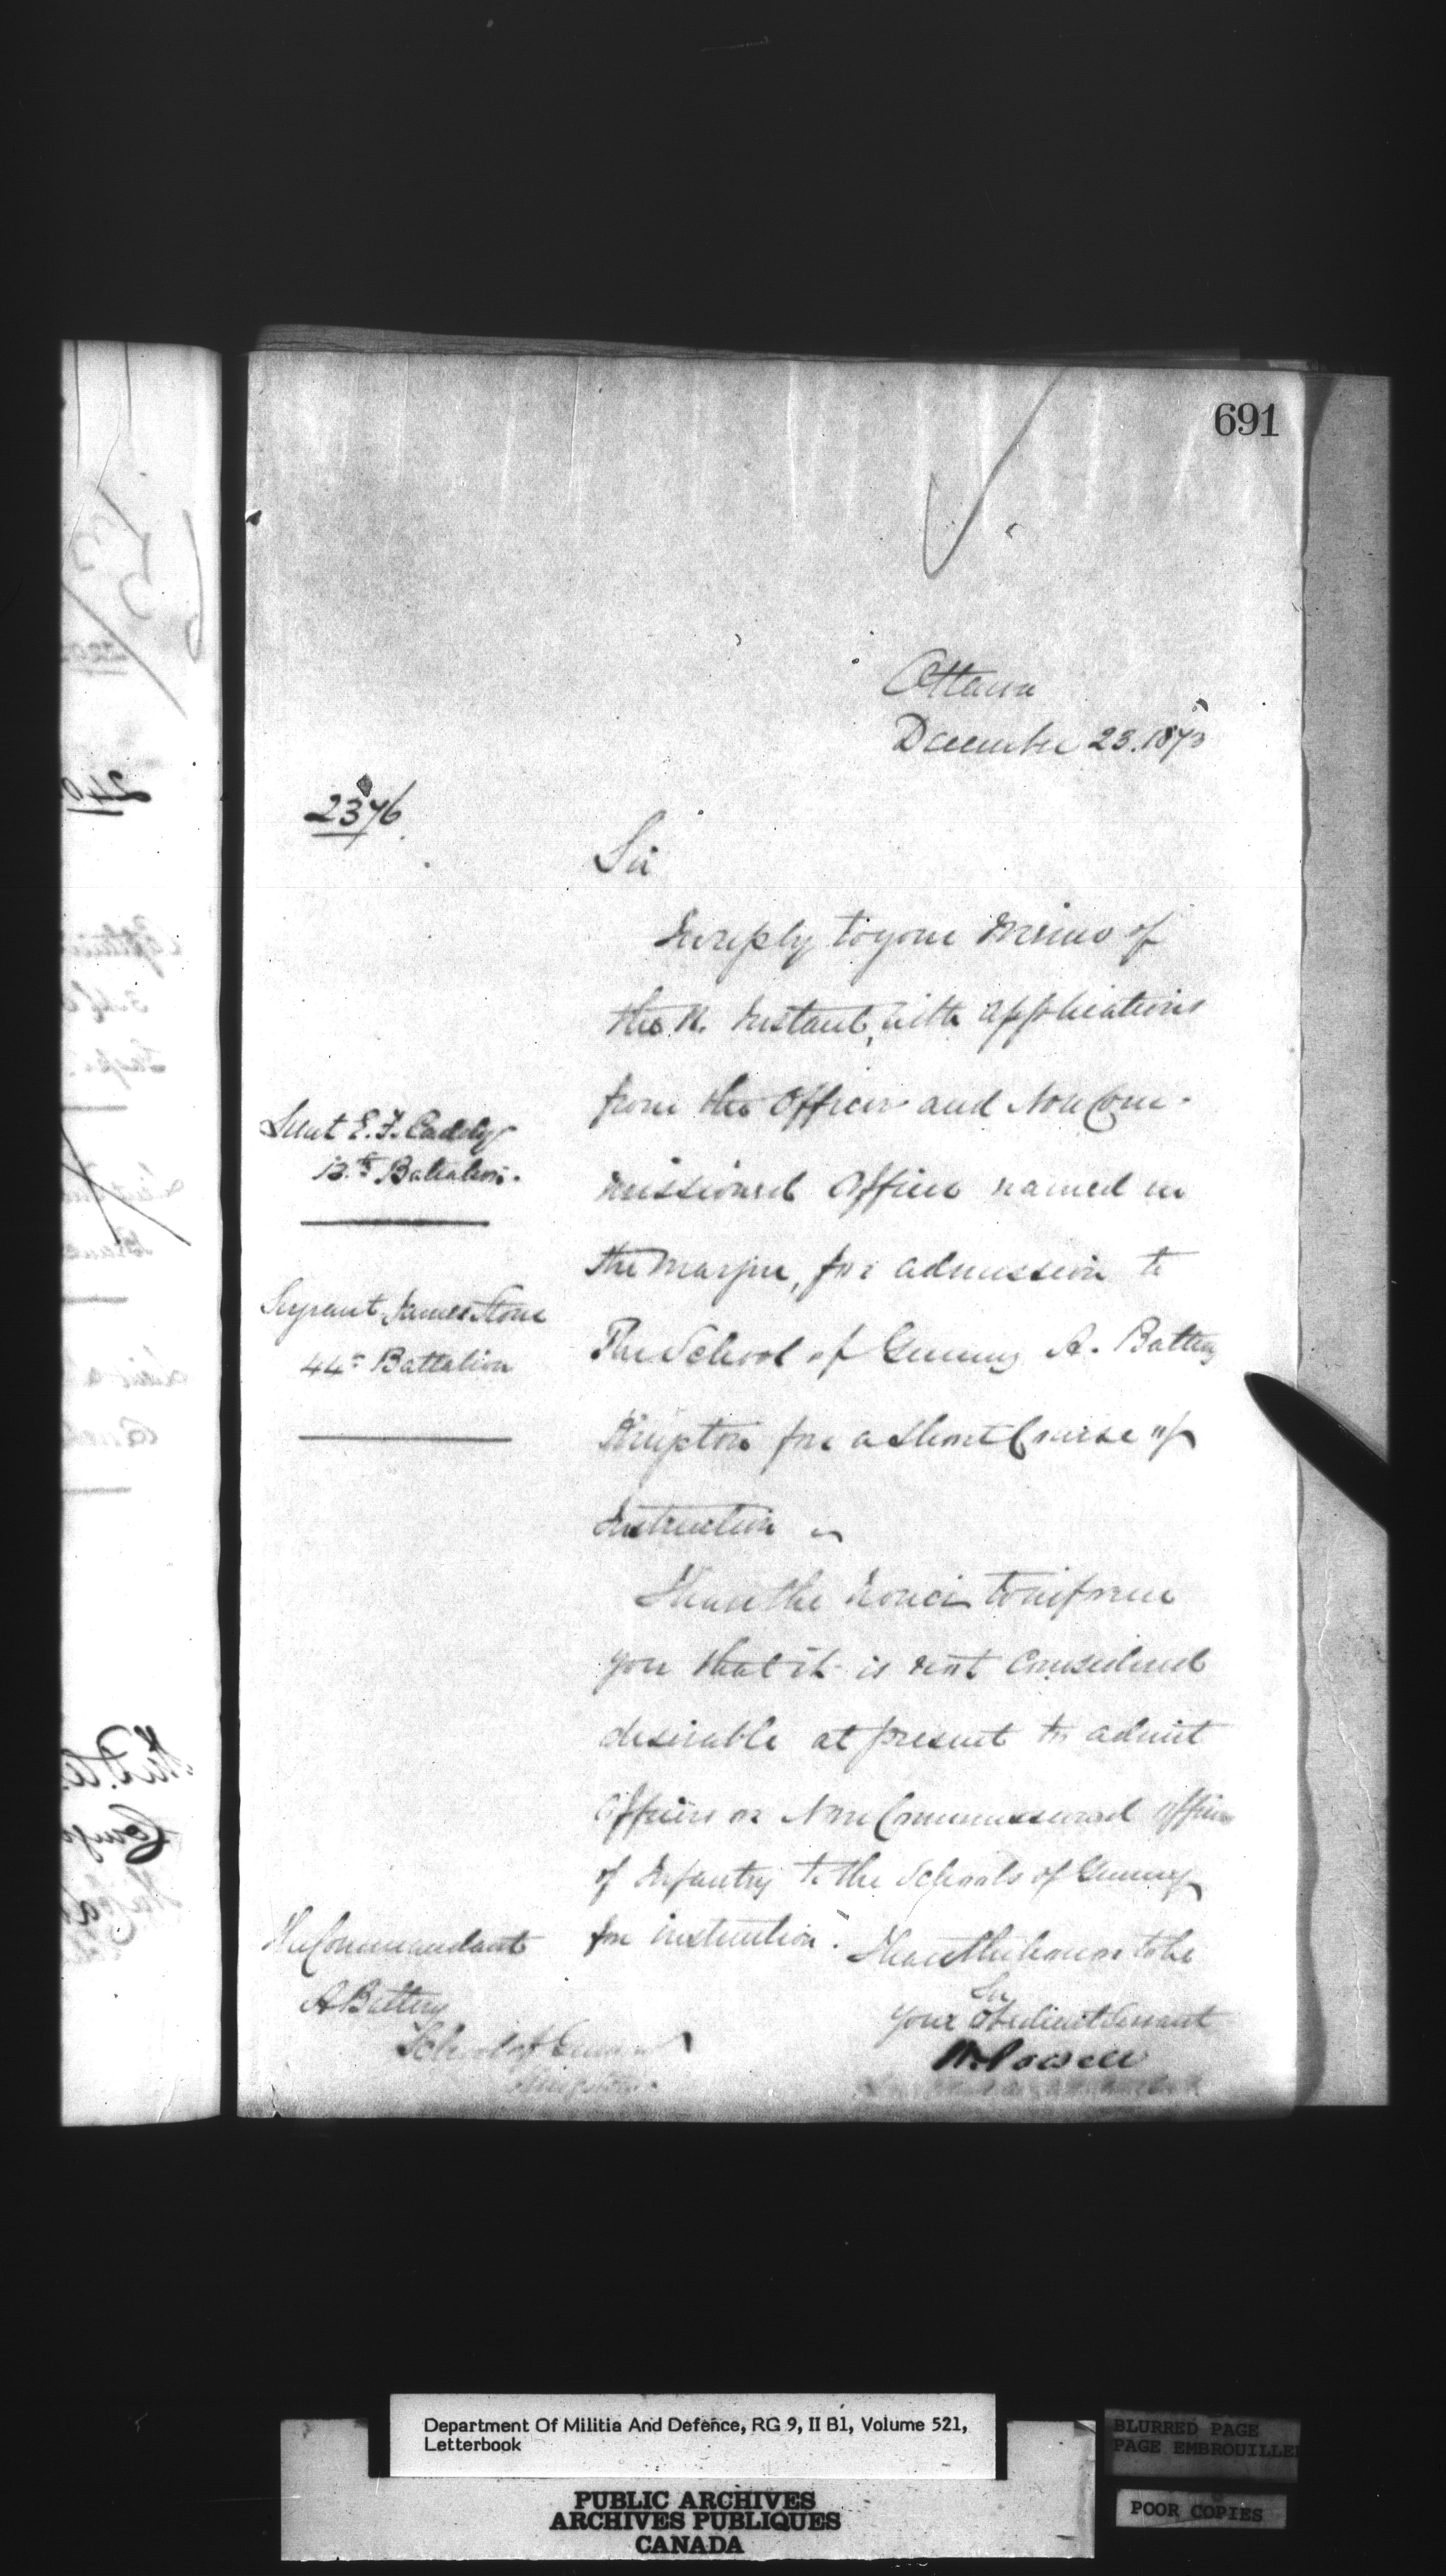 691
Ottawa
December 23. 1873
2376
Sir
In reply to your memo of
the instant, with applications
from the Officer and Non Com-
Lieut E. F. Caddy
13th Battalion.
missioned Officer named in
the margin, for admission to
Sergeant James Stone
44th Battalion
The School of Gunnery A. Battery
Kingston for a Short Course of
Instruction
I have the honor to inform
you that it is not considered
desirable at present to admit
Officers or Non Commissioned officers
of Infantry to the Schools of Gunnery
for instruction.
I have the honor to be
Sir
Your Obedient Servant
W. Powell
The Commandant
A Battery
School of Gunnery
Kingston
Department Of Militia And Defence, RG 9, II B1, Volume 521,
Letterbook
PUBLIC ARCHIVES
ARCHIVES PUBLIQUES
CANADA
BLURRED PAGE
PAGE EMBROUILLEE
POOR COPIES